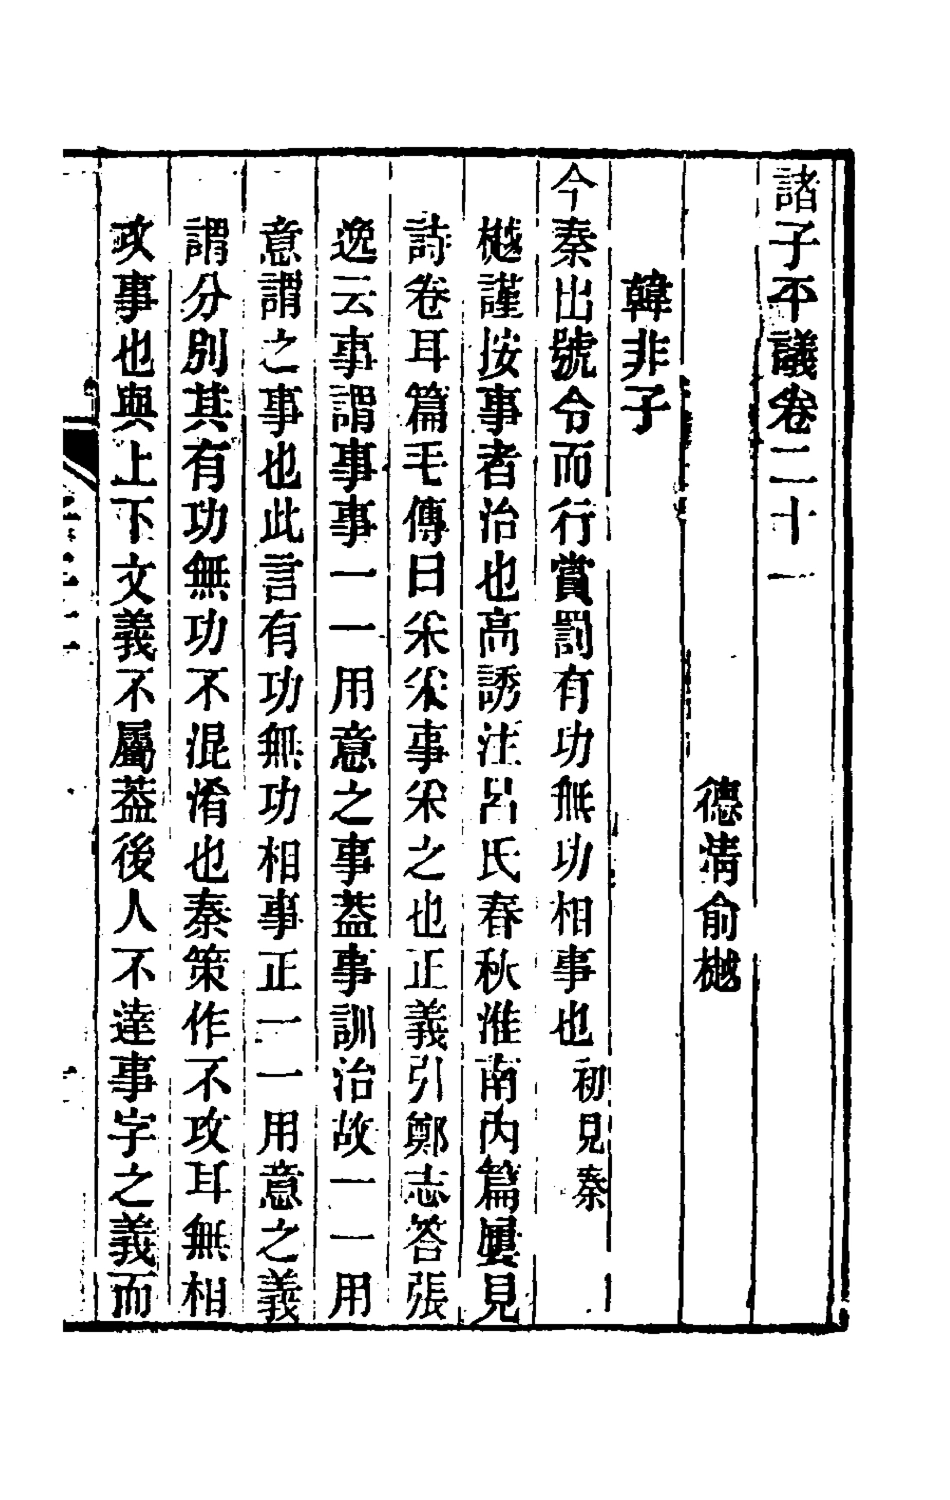 諸子平議卷二十一
德清俞樾
韓非子
今秦出號令而行賞罰有功無功相事也初見秦
樾謹按事者治也高誘注呂氏春秋淮南內篇屢見
詩卷耳篇毛傳曰采采事采之也正義引鄭志答張
逸云事謂事事一一用意之事葢事訓治故一一用
意謂之事也此言有功無功相事正一一用意之義
謂分別其有功無功不混淆也秦策作不攻耳無相
攻事也與上下文義不屬葢後人不達事字之義而